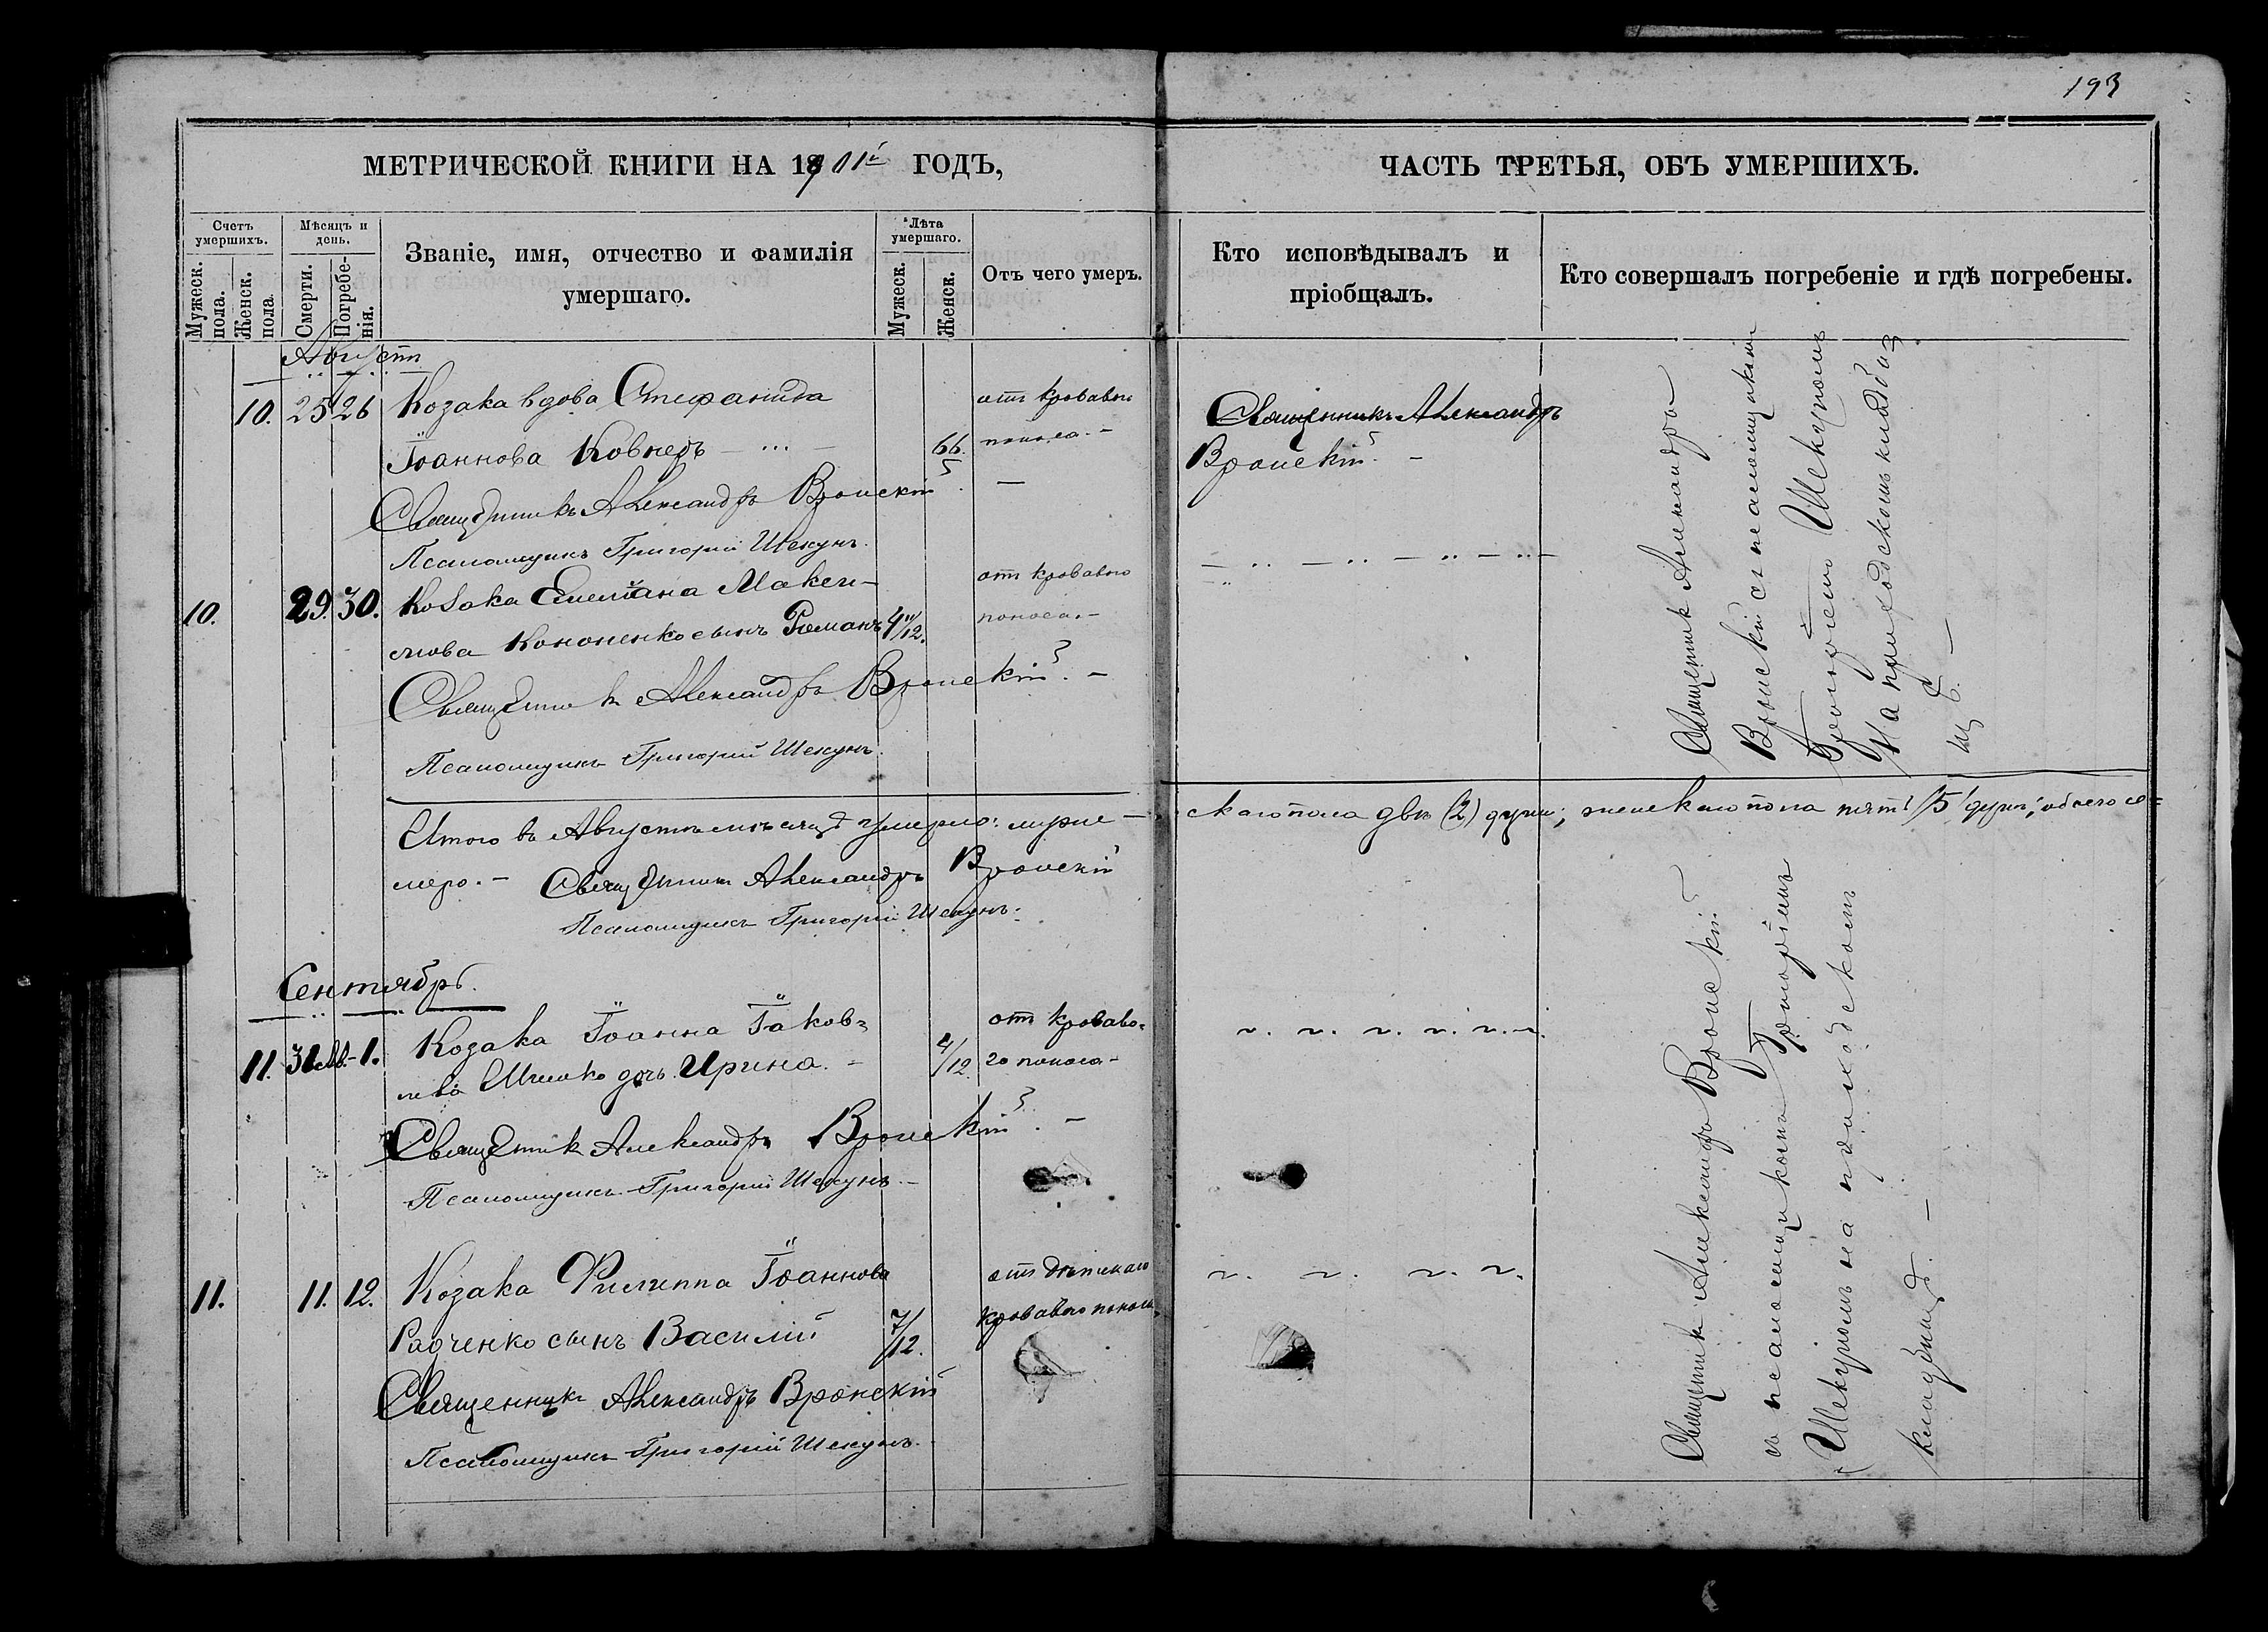 193
МЕТРИЧЕСКОЙ КНИГИ НА 1901й ГОДЪ,
ЧАСТЬ ТРЕТЬЯ, ОБЪ УМЕРШИХЪ.
Счетъ умершихъ.
Мужеск. пола.
Женск. пола.
Мѣсяцъ и день.
Смерти.
Погребенія.
Званіе, имя, отчество и фамилія
умершаго.
Лѣта умершаго.
Мужеск.
Женск.
Отъ чего умеръ.
Кто исповѣдывалъ и
пріобщалъ.
Кто совершалъ погребеніе и гдѣ погребены.
Августъ
10. 25 26 Козака вдова Стефанида
Іоаннова Ковнеръ 66.
отъ кроваваго
поноса. –
Священникъ Александръ
Вронскій. –
Священникъ Александръ Вронскій. –
Псаломщикъ Григорій Шекунъ.
10. 29. 30. Козака Емеліана Макси-
мова Кононенко сынъ Романъ 4 11/12.
отъ кроваваго
поноса. –
Священникъ Александръ Вронскій. –
Псаломщикъ Григорій Шекунъ.
Священник Александръ
Вронскій съ псаломщикомъ
Григоріемъ Шекуномъ
На приходскомъ кладби=
щѣ. –
Итого въ Августѣ мѣсяцѣ умерло: муже-
скаго пола двѣ (2) души; женскаго пола пять (5) душъ; обоего се=
меро. – Священникъ Александръ Вронскій
Псаломщикъ Григорій Шекунъ.
Сентябрь.
11. 31 авг. – 1. Козака Іоанна Іаков=
лева дочь Ирина. – 4/12
отъ кроваво=
го поноса –
Священник Александръ Вронскій. –
Псаломщикъ Григорій Шекунъ. –
11. 11. 12. Козака Филиппа Іоаннова
Радченко сынъ Василій 7/12.
отъ дѣтскаго
кроваваго поноса.
Священникъ Александръ Вронскій
Псаломщикъ Григорій Шекунъ.
Священник Александръ Вронскій
съ псаломщикомъ Григоріемъ
Шекуномъ на приходскомъ
кладбищѣ. –